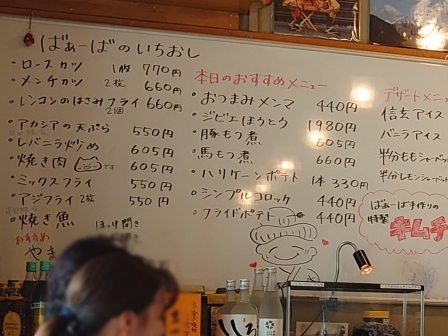 ばぁーばのいちおし
・ロースカツ 1枚 770円
・メンチカツ 2枚 660円
・レンコンのはさみフライ 2個 660円
・アカシアの天ぷら 550円
・レバニラ炒め 605円
・焼き肉 です 605円
・ミックスフライ 550円
・アジフライ 2枚 550円
・焼き魚 ほっけ開き
おすすめ
やき
本日のおすすめメニュー
・おつまみメンマ 440円
・ジビエほうとう 1980円
・豚もつ煮 605円
・馬もつ煮 660円
・ハリケーンポテト 1本 330円
・シンプルコロッケ 440円
・フライドポテト 440円
デザートメニ
信玄アイス
バニラアイス
半分ももシャーベ
半分レモンシャーベッ
ばぁーば手作りの
特製
キムチ